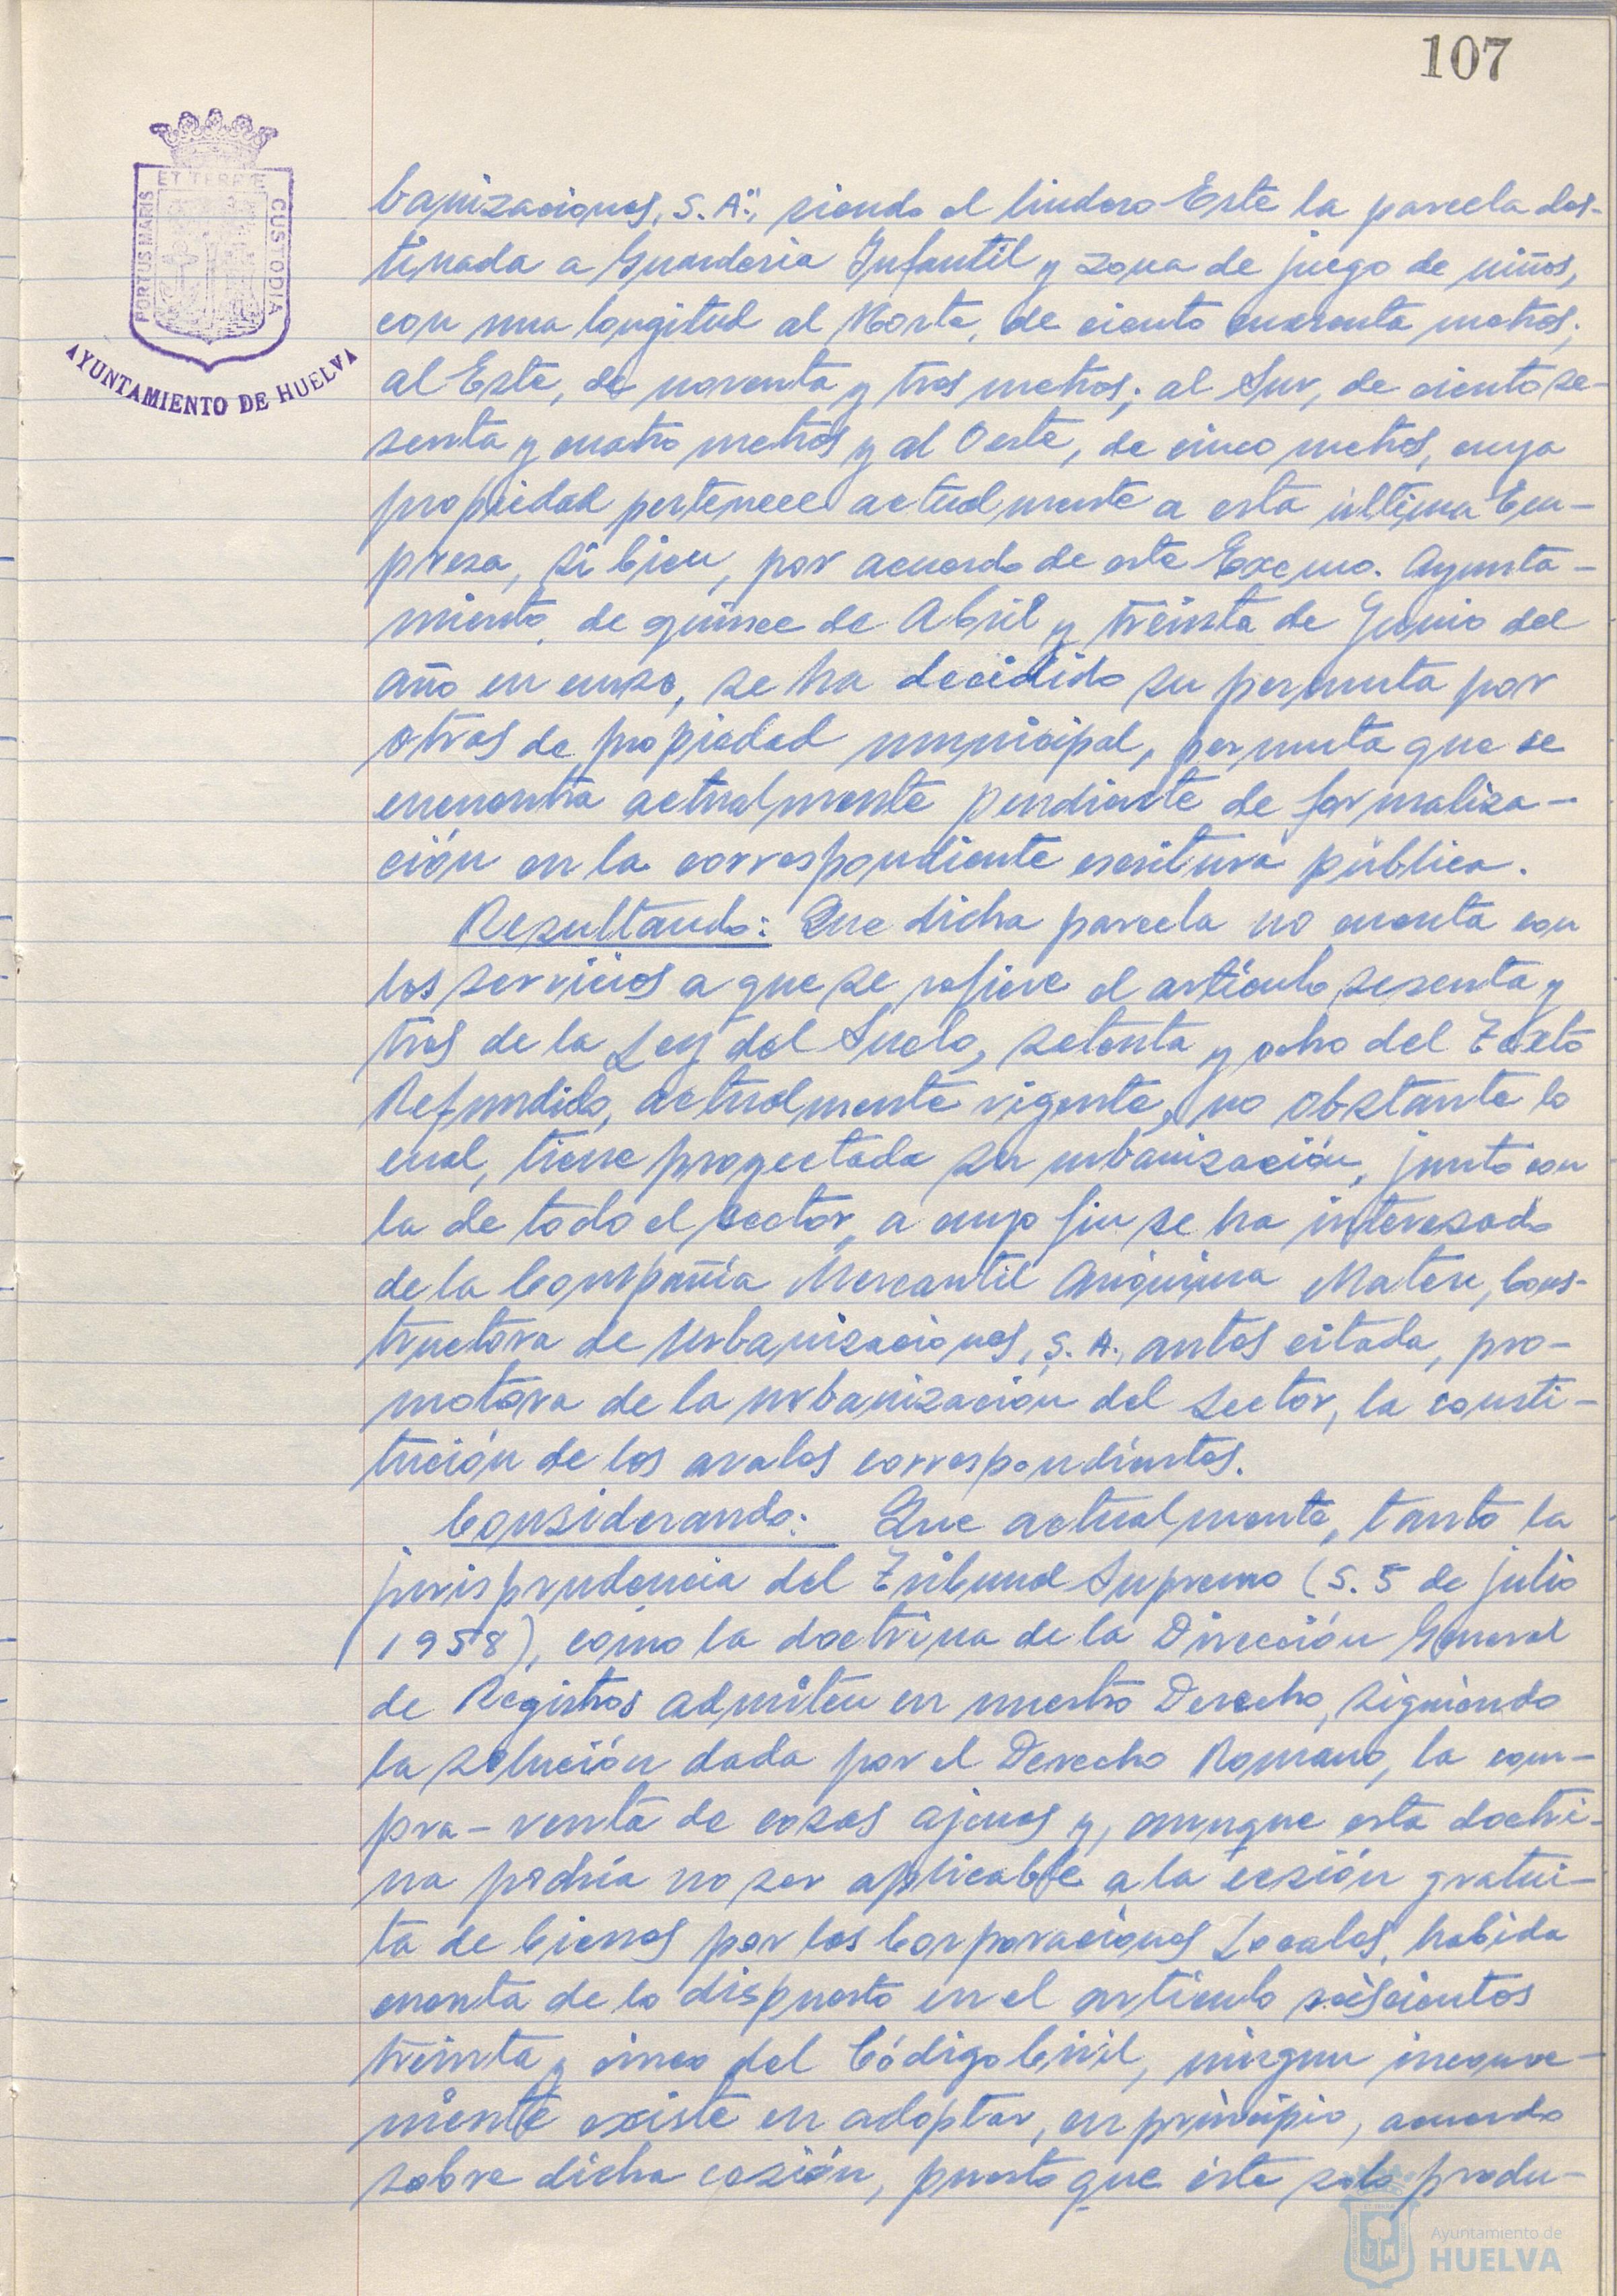 107
ET TERRÆ
PORTUS MARIS
CUSTODIA
AYUNTAMIENTO DE HUELVA
banizaciones, S.A.", siendo el lindero Este la parcela des-
tinada a Guardería Infantil y zona de juego de niños,
con una longitud al Norte, de ciento cuarenta metros;
al Este, de noventa y tres metros; al Sur, de ciento se-
senta y cuatro metros y al Oeste, de cinco metros, cuya
propiedad pertenece actualmente a esta última Em-
presa, si bien, por acuerdo de este Excmo. Ayunta-
miento, de quince de Abril y treinta de Junio del
año en curso, se ha decidido su permuta por
otras de propiedad municipal, permuta que se
encuentra actualmente pendiente de formaliza-
ción en la correspondiente escritura pública.
Resultando: Que dicha parcela no cuenta con
los servicios a que se refiere el artículo sesenta y
tres de la Ley del Suelo, setenta y ocho del Texto
Refundido, actualmente vigente, no obstante lo
cual, tiene proyectada su urbanización, junto con
la de todo el sector, a cuyo fin se ha interesado
de la Compañía Mercantil Anónima Maten, Cons-
tructora de Urbanizaciones, S.A., antes citada, pro-
motora de la urbanización del sector, la consti-
tución de los avales correspondientes.
Considerando: Que actualmente, tanto la
jurisprudencia del Tribunal Supremo (S. 5 de julio
1958), como la doctrina de la Dirección General
de Registros admiten en nuestro Derecho, siguiendo
la solución dada por el Derecho Romano, la com-
pra-venta de cosas ajenas y, aunque esta doctri-
na podría no ser aplicable a la cesión gratui-
ta de bienes por las Corporaciones Locales, habida
cuenta de lo dispuesto en el artículo seiscientos
treinta y cinco del Código Civil, ningun inconve-
niente existe en adoptar, en principio, acuerdo
sobre dicha cesión, puesto que ésta solo produ-
Ayuntamiento de
HUELVA